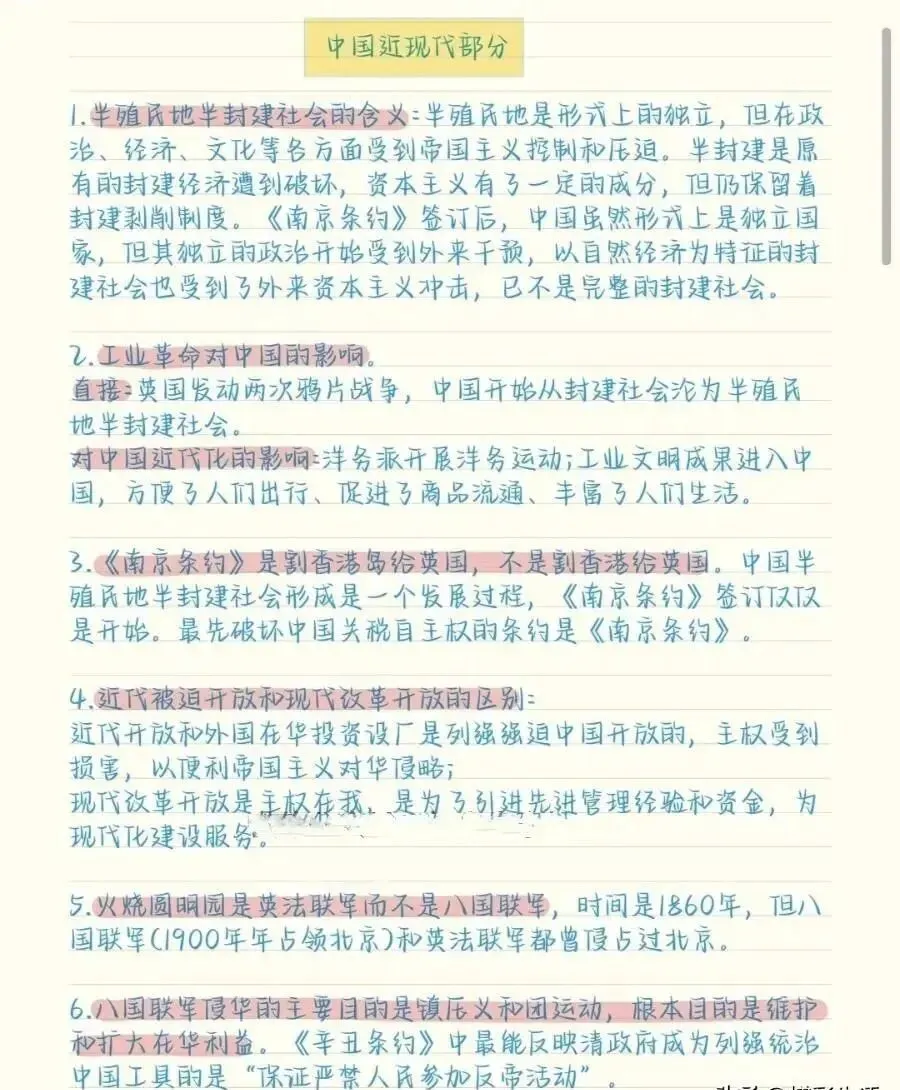 中国近现代部分
1.半殖民地半封建社会的含义:半殖民地是形式上的独立，但在政
治、经济、文化等各方面受到帝国主义控制和压迫。半封建是原
有的封建经济遭到破坏，资本主义有了一定的成分，但仍保留着
封建剥削制度。《南京条约》签订后，中国虽然形式上是独立国
家，但其独立的政治开始受到外来干预，以自然经济为特征的封
建社会也受到了外来资本主义冲击，已不是完整的封建社会。
2.工业革命对中国的影响。
直接:英国发动两次鸦片战争，中国开始从封建社会沦为半殖民
地半封建社会。
对中国近代化的影响:洋务派开展洋务运动;工业文明成果进入中
国，方便了人们出行、促进了商品流通、丰富了人们生活。
3.《南京条约》是割香港岛给英国，不是割香港给英国。中国半
殖民地半封建社会形成是一个发展过程，《南京条约》签订仅仅
是开始。最先破坏中国关税自主权的条约是《南京条约》。
4.近代被迫开放和现代改革开放的区别:
近代开放和外国在华投资设厂是列强强迫中国开放的，主权受到
损害，以便利帝国主义对华侵略;
现代改革开放是主权在我，是为了引进先进管理经验和资金，为
现代化建设服务。
5.火烧圆明园是英法联军而不是八国联军，时间是1860年，但八
国联军(1900年年占领北京)和英法联军都曾侵占过北京。
6.八国联军侵华的主要目的是镇压义和团运动，根本目的是维护
和扩大在华利益。《辛丑条约》中最能反映清政府成为列强统治
中国工具的是“保证严禁人民参加反帝活动”。